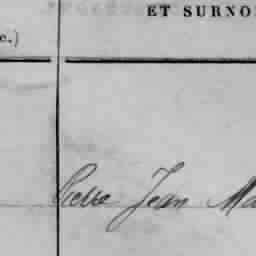 ET SURNO
e.)
Pierre Jean Ma